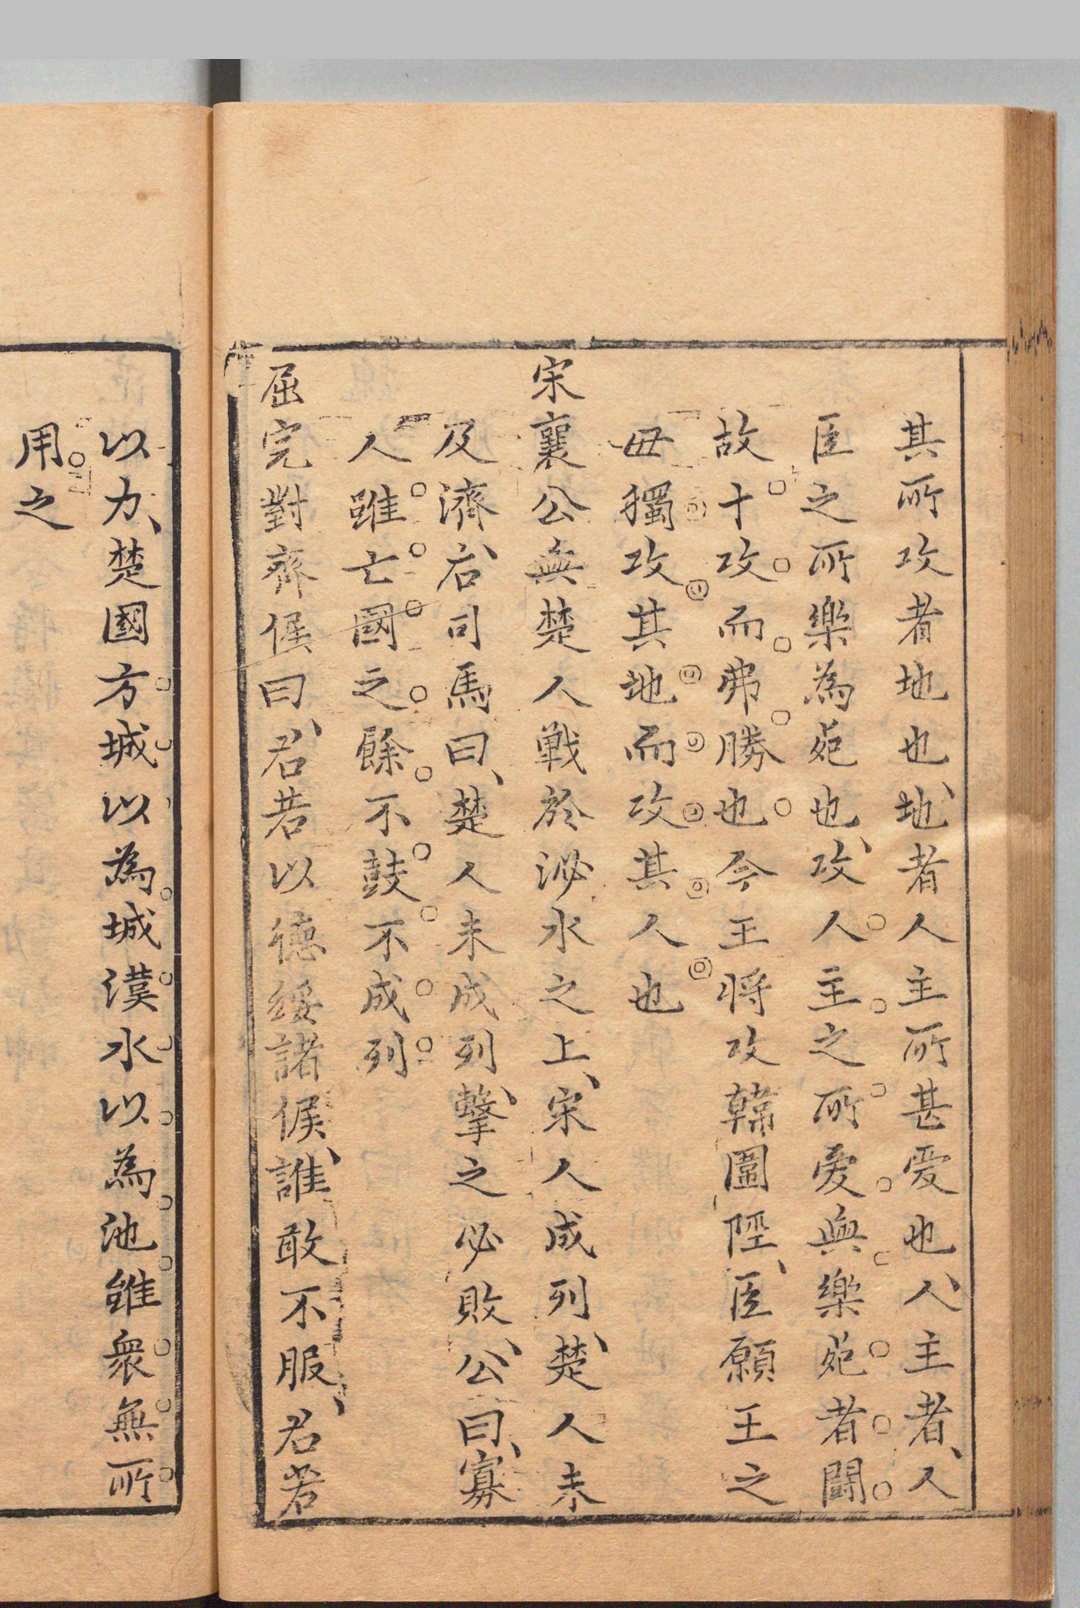 其所攻者地也、地者人主所甚爱也、人主者、人
臣之所樂為死也、攻人主之所爱與樂死者鬪
故十攻而弗勝也今王将攻韓圍陘、臣願王之
毋獨攻其地而攻其人也
宋襄公與楚人戰於泌水之上、宋人成列、楚人未
及濟、右司馬曰、楚人未成列、擊之必敗、公曰、寡
人雖亡國之餘不鼓不成列
屈完對齊侯曰、君若以德綏諸侯、誰敢不服、君若
以力、楚國方城以為城漢水以為池雖衆無所
用之